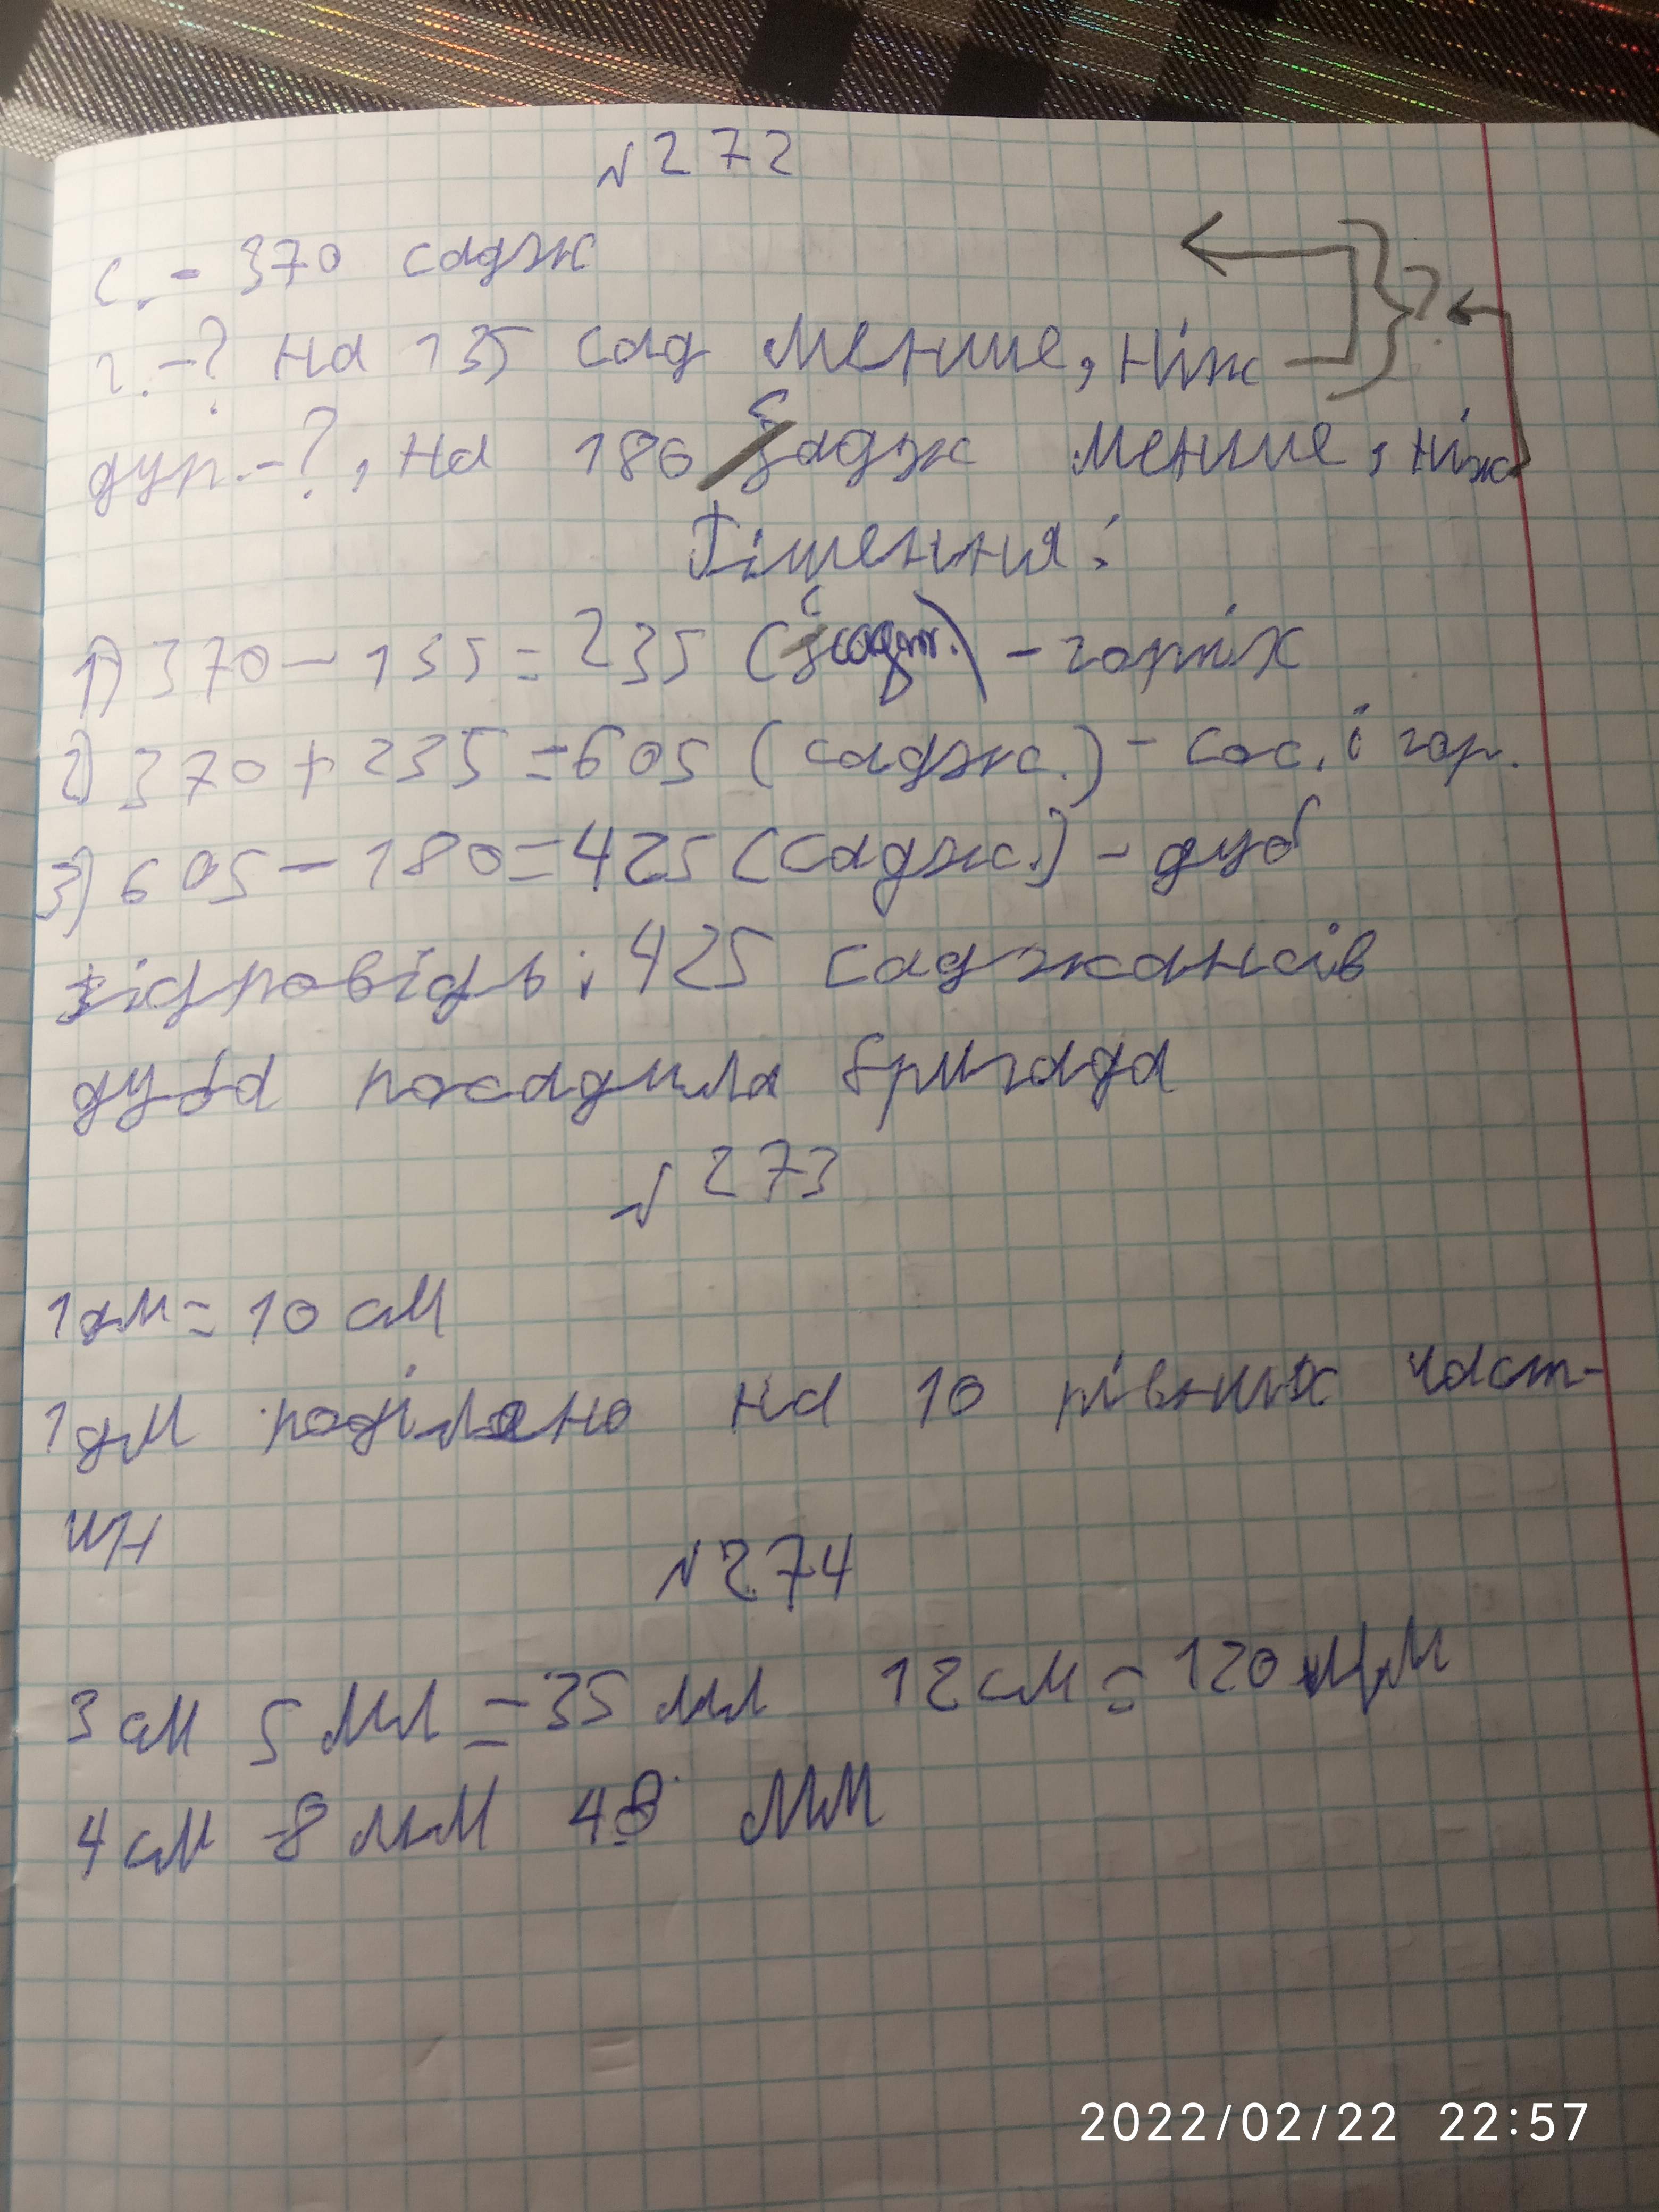 № 272
С. - 370 садж
г. - ? на 135 сад менше, ніж
дуп. - ?, на 180 садж менше, ніж ?
Рішення:
1) 370 - 135 = 235 (садж.) - горіх
2) 370 + 235 = 605 (саджс.) - сос. і гор.
3) 605 - 180 = 425 (саджс.) - дуб
Відповідь: 425 саджанців
дуба посадила бригада
№ 273
1 дм = 10 см
1 дм поділено на 10 рівних част-
ин
№ 274
3 см 5 мм = 35 мм 12 см = 120 мм
4 см 8 мм 48 мм
2022/02/22 22:57